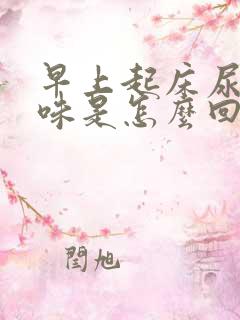 早上起床尿
味是怎麼回
閆旭